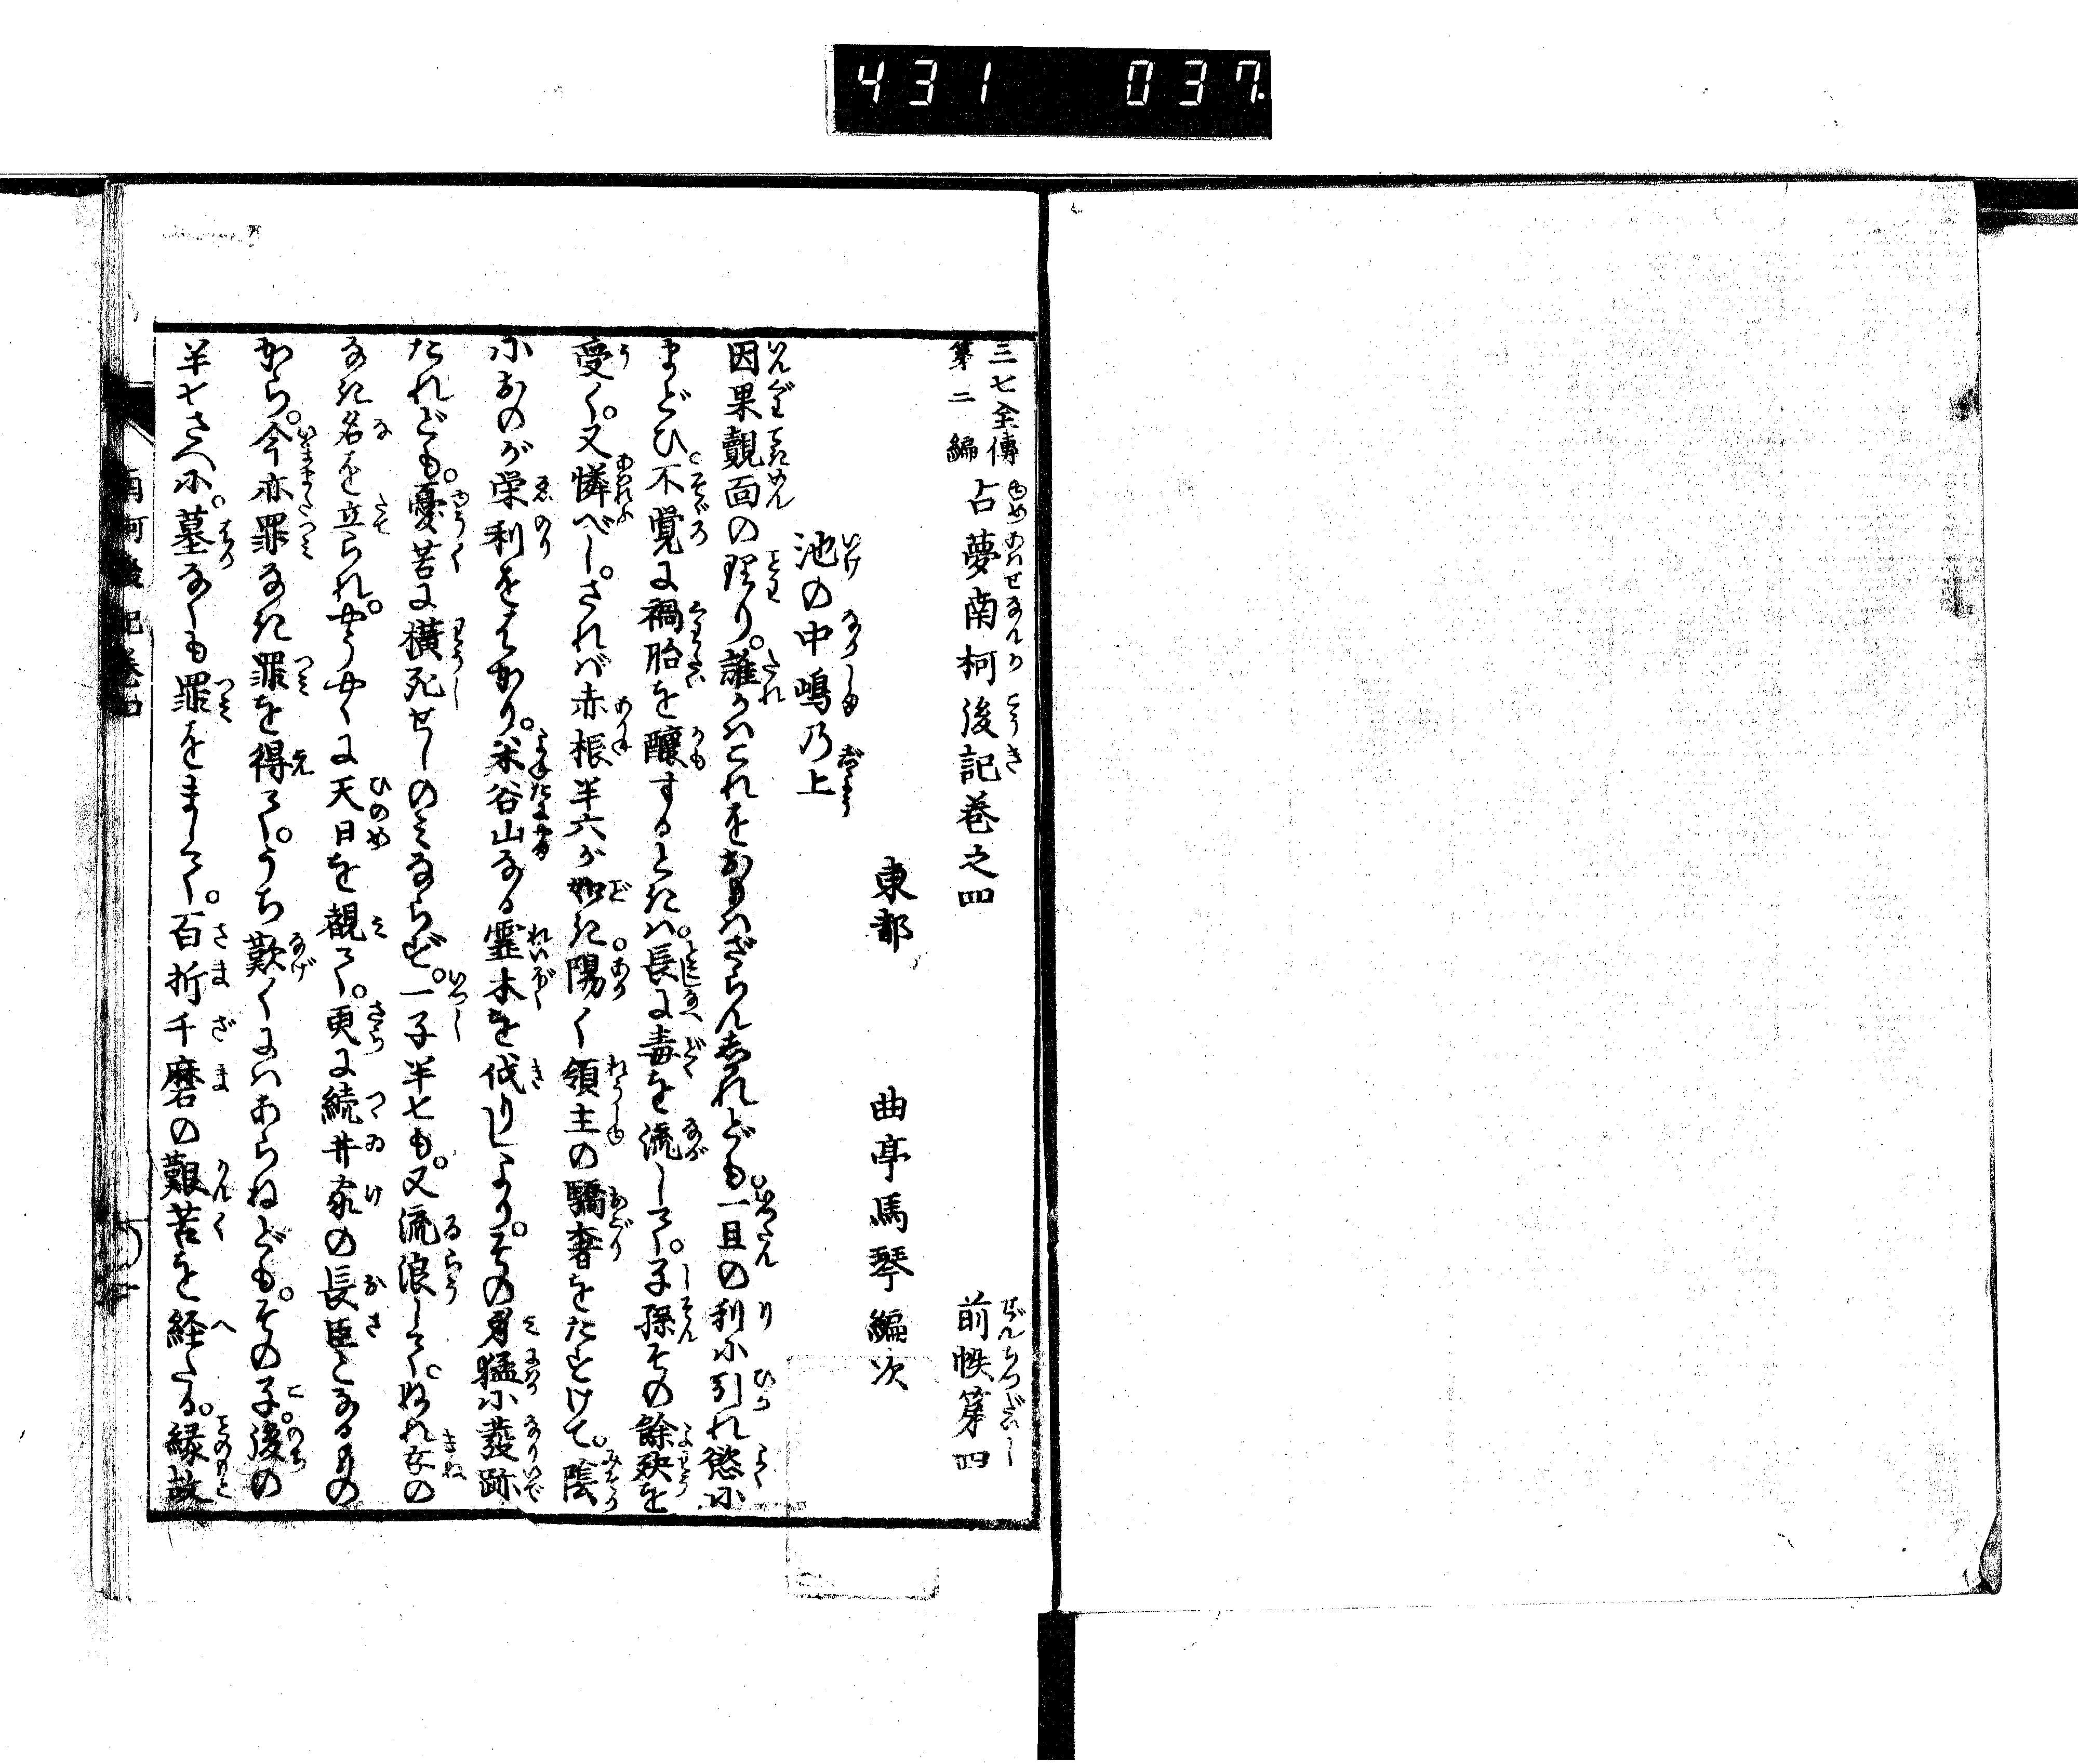 431 037
三七全傳
第二編
占夢南柯後記巻之四
前帙第四
東都 曲亭馬琴編次
池の中嶋乃上
因果覿面の理り。誰かはこれをおもはざらん。しかれども。一旦の利に引れ慾に
まどひ。不覚に禍胎を釀するときは。長に毒を流して。子孫その餘殃を
受く。又憐べし。されば赤根半六が如き。陽く領主の驕奢をたすけて。陰
におのが栄利をはかり。米谷山なる霊木を伐りしより。その身猛に發跡
たれども。憂苦に横死せしのみならず。一子半七も。又流浪して。ぬれ衣の
なき名を立られ。やうやくに天日を観て。更に続井家の長臣となるもの
から。今亦罪なき罪を得て。うち歎くにはあらねども。その子。後の
半七さへに。墓なくも罪をまして。百折千磨の艱苦を経たる。縁故
南柯後記巻四